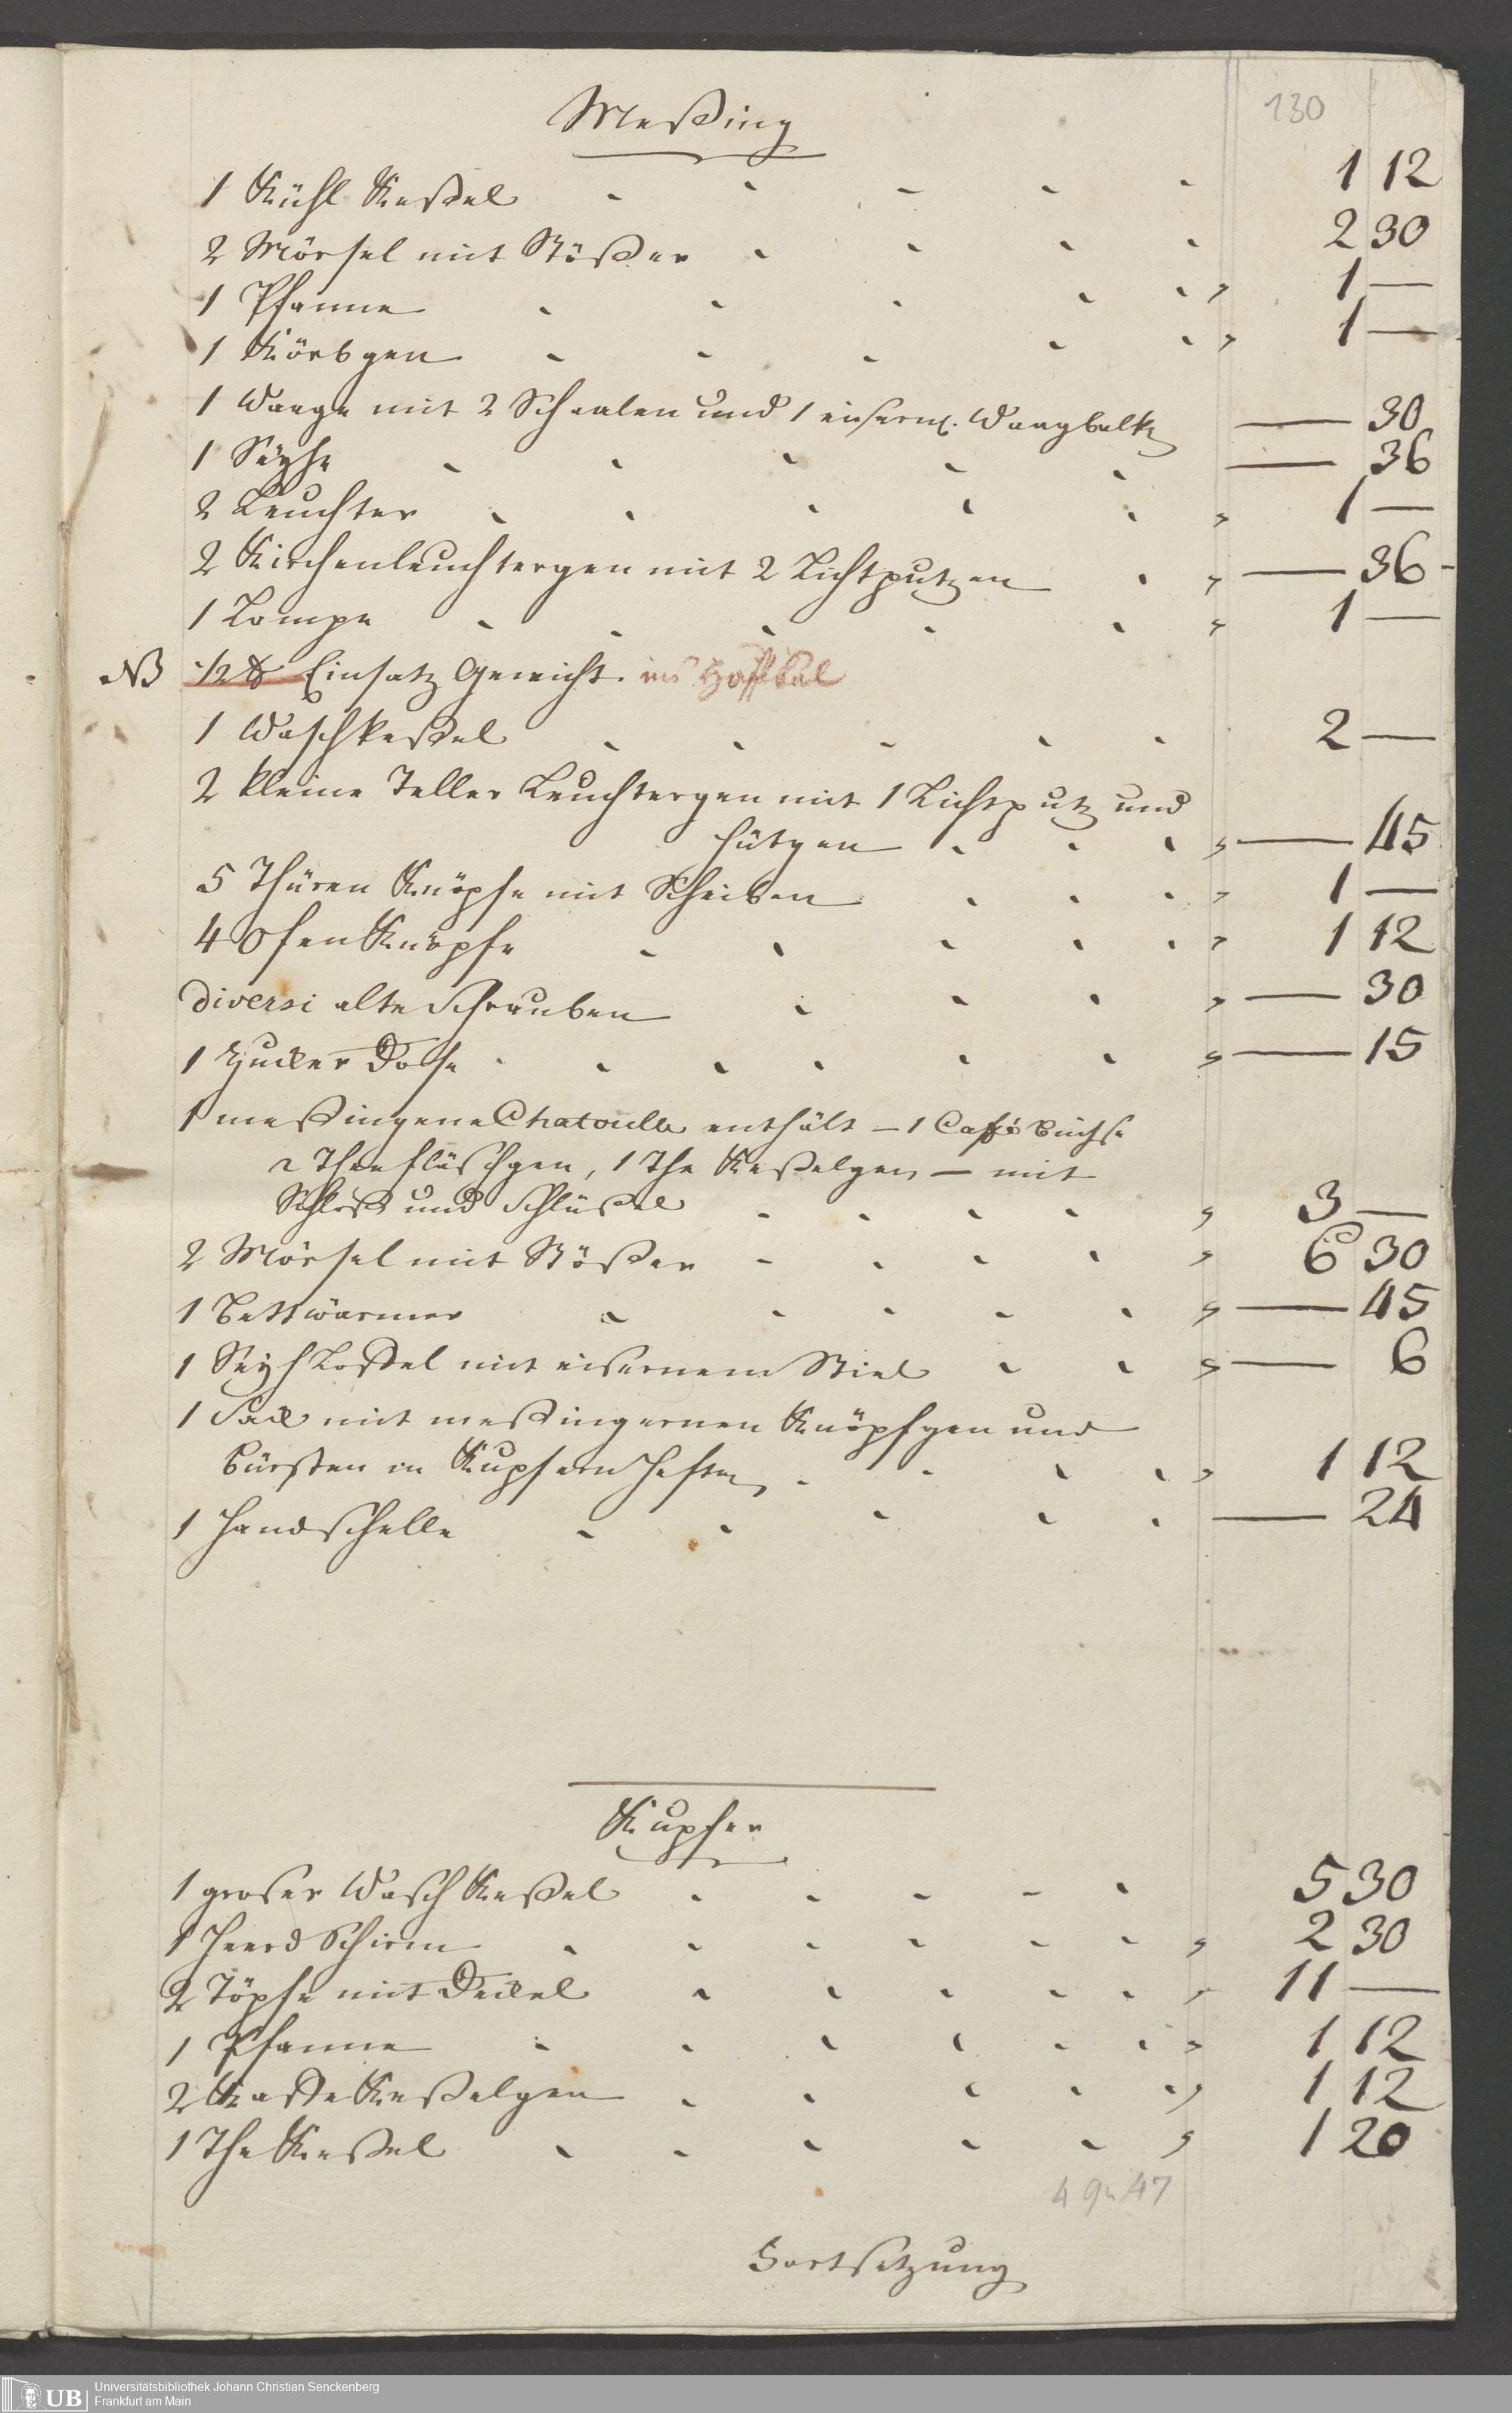 130
Meßing
1 Kühl Keßel - - - - - 1 12
2 Mörsel mit Stößer - - - - 2 30
1 Pfanne - - - - - " 1 —
1 Körbgen - - - - - " 1 —
1 Waage mit 2 Schaalen und 1 eisern. Waagbalk — 30
1 Seyhe - - - - - — 36
2 Leuchter - - - - - " 1 —
2 Kirchenleuchtergen mit 2 Lichtputzen - " — 36
1 Lampe - - - - - " 1 —
NB 1/2 ℔ Einsatz Gewicht. ins
1 Waschkeßel - - - - - 2 —
2 kleine Teller Leuchtergen mit 1 Lichtputz und
hütgen - - - " — 45
5 Thüren Knöpfe mit Scheiben - - - " 1 —
4 Ofen Knöpfe - - - - - " 1 12
Diversi alte Schrauben - - - " — 30
1 Zucker Dose - - - - - - " — 15
1 meßingene Chatoulle enthält — 1 Caffé Büchse
2 Theefläschgen, 1 The Keßelgen — mit
Schloß und Schlüßel - - - - " 3 —
2 Mörsel mit Stößer - - - - " 6 30
1 Bettwärmer - - - - - " — 45
1 Seyh Loffel mit eisernem Stiel - - " — 6
1 Sack mit meßingernen Knöpfgen und
Bürsten in Kupfern Heften - - - - " 1 12
1 Handschelle - - - - - — 24
Kupfer
1 groser Wasch Keßel - - - - - 5 30
1 Heerd Schirm - - - - - - " 2 30
2 Töpfe mit Deckel - - - - - " 11 —
1 Pfanne - - - - - - " 1 12
2 Kaffe Keßelgen - - - - - " 1 12
1 The Keßel - - - - - " 1 20
47
Fortsetzung
UB Universitätsbibliothek Johann Christian Senckenberg
Frankfurt am Main